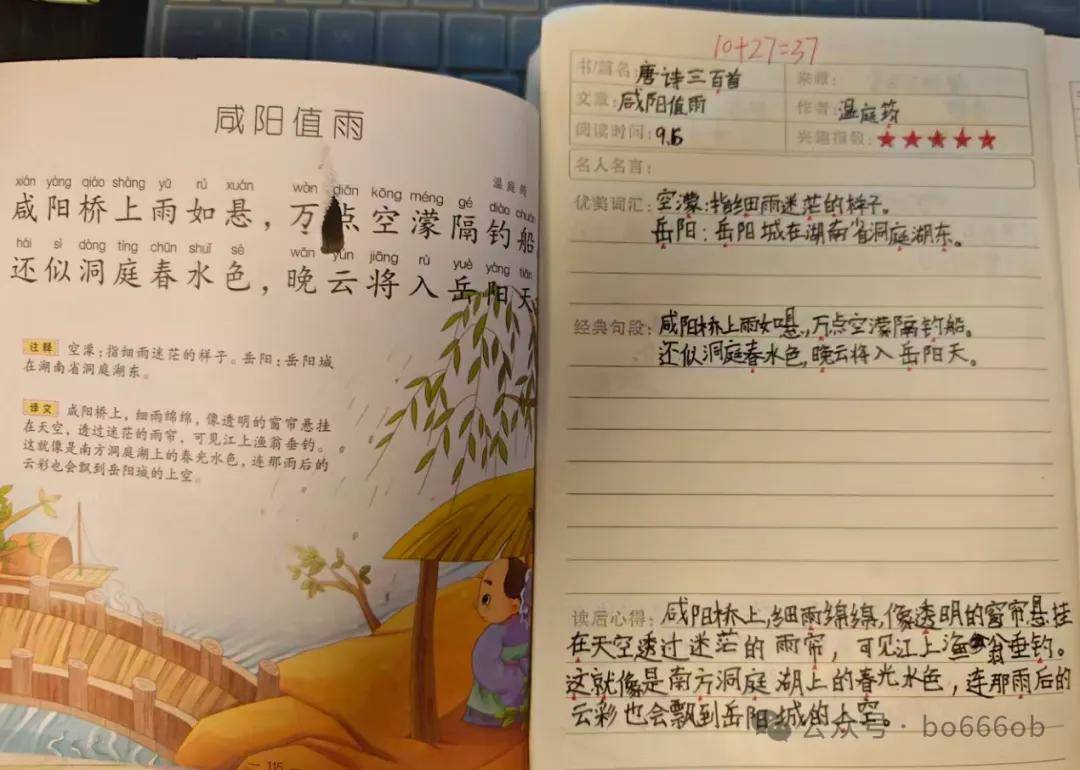 咸阳值雨
温庭筠
xián yáng qiáo shàng yǔ rú xuán wàn diǎn kōng méng gé diào chuán
咸阳桥上雨如悬，万点空濛隔钓船
hái sì dòng tíng chūn shuǐ sè wǎn yún jiāng rù yuè yáng tiān
还似洞庭春水色，晚云将入岳阳天
注释 空濛：指细雨迷茫的样子。岳阳：岳阳城
在湖南省洞庭湖东。
译文 咸阳桥上，细雨绵绵，像透明的窗帘悬挂
在天空，透过迷茫的雨帘，可见江上渔翁垂钓。
这就像是南方洞庭湖上的春光水色，连那雨后的
云彩也会飘到岳阳城的上空。
115
10+27=37
书/篇名：唐诗三百首 来源：
文章：咸阳值雨 作者：温庭筠
阅读时间：9.15 兴趣指数：★★★★★
名人名言：
优美词汇：空濛：指细雨迷茫的样子。
岳阳：岳阳城在湖南省洞庭湖东。
经典句段：咸阳桥上雨如悬，万点空濛隔钓船。
还似洞庭春水色，晚云将入岳阳天。
读后心得：咸阳桥上，细雨绵绵，像透明的窗帘悬挂
在天空透过迷茫的雨帘，可见江上渔翁垂钓。
这就像是南方洞庭湖上的春光水色，连那雨后的
云彩也会飘到岳阳城的上空。
公众号·bo666ob